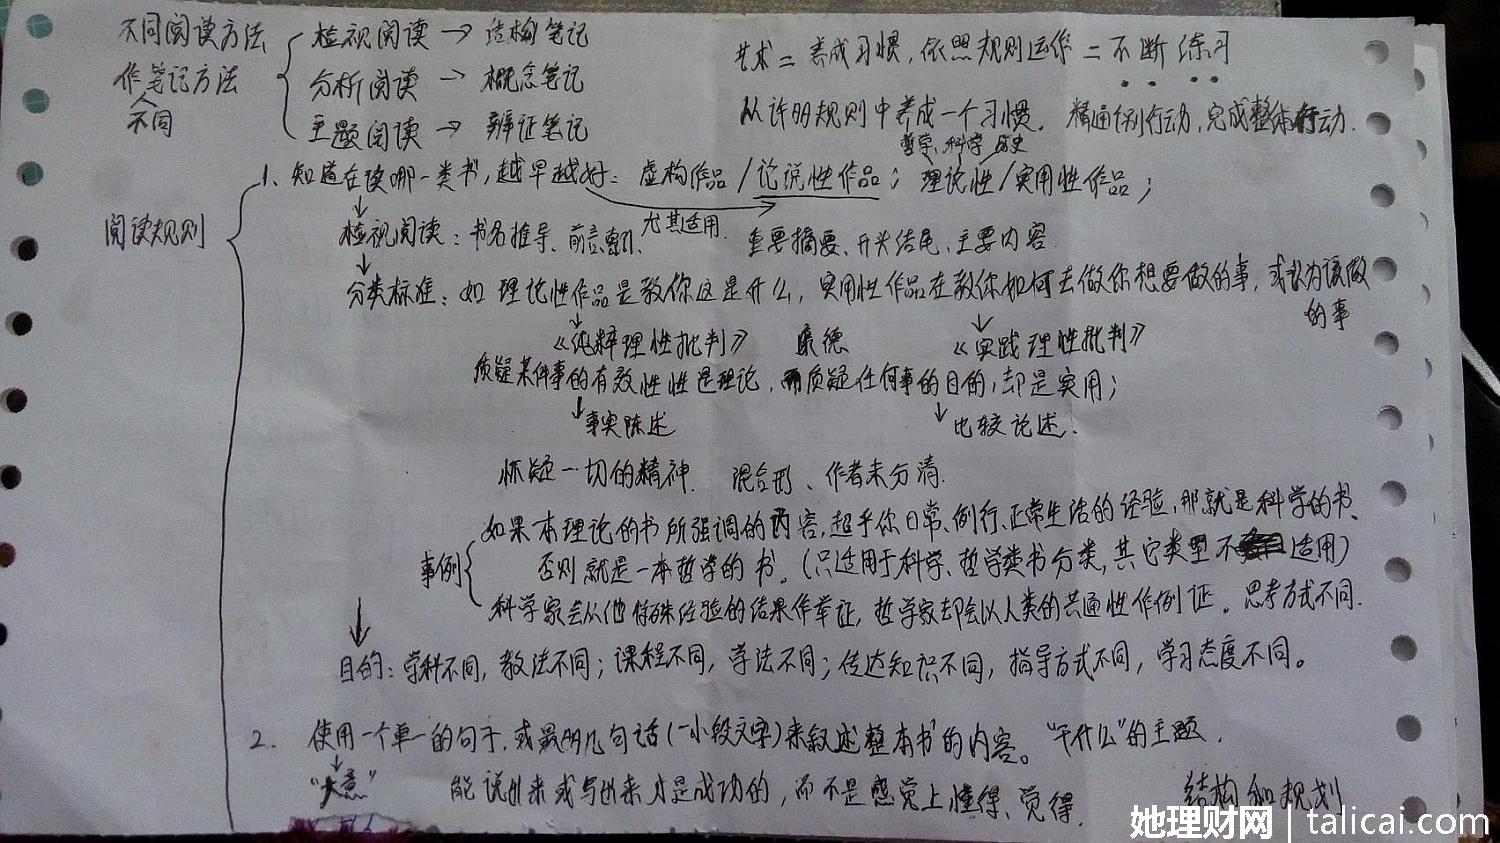 不同阅读方法 检视阅读 → 结构笔记
作笔记方法 分析阅读 → 概念笔记
不同 主题阅读 → 辩证笔记
艺术 = 养成习惯,依照规则运作 = 不断练习
从许多规则中养成一个习惯。 精通个别行动,完成整体行动.
哲学、科学、历史
阅读规则
1、知道在读哪一类书,越早越好:虚构作品/论说性作品;理论性/实用性作品;
尤其适用.
检视阅读:书名推导、前言、索引、 重要摘要、开头结尾、主要内容.
分类标准:如理论性作品是教你这是什么,实用性作品在教你如何去做你想要做的事,或认为该做
的事
《纯粹理性批判》 康德 《实践理性批判》
质疑某件事的有效性性是理论,而质疑任何事的目的,却是实用;
事实陈述 比较论述.
怀疑一切的精神. 混合形、作者未分清.
事例 如果本理论的书所强调的内容,超乎你日常、例行、正常生活的经验,那就是科学的书、
否则就是一本哲学的书。(只适用于科学、哲学类书分类,其它类型不适用)
科学家会从他特殊经验的结果作举证,哲学家却会以人类的共通性作例证。思考方式不同.
目的:学科不同,教法不同;课程不同,学法不同;传达知识不同,指导方式不同,学习态度不同。
2. 使用一个单一的句子,或最多几句话(一小段文字)来叙述整本书的内容。"干什么"的主题.
"大意" 能说出来或写出来才是成功的,而不是感觉上懂得、觉得.
结构和规划
她理财网 | talicai.com